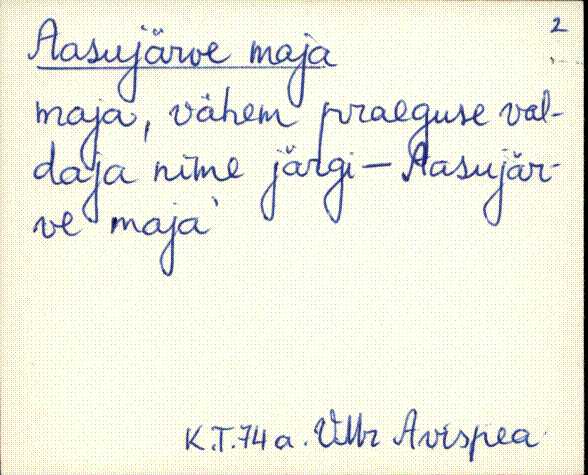 2
Aasujärve maja
maja, vähem praeguse val-
daja nime järgi – Aasujär-
ve maja`
K.T. 74 a. VMr Avispea